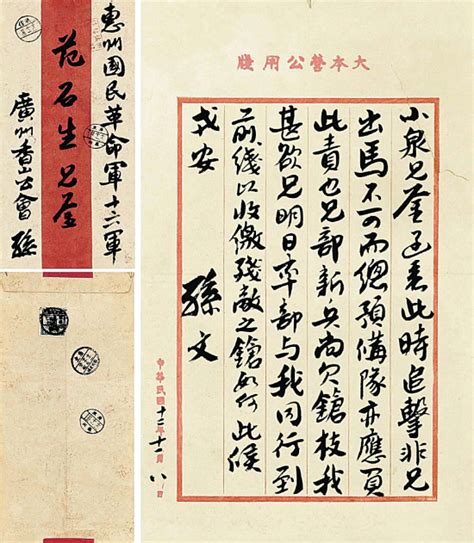 惠州國民革命軍十六軍
范石生兄鑒
廣州香山公會 孫
大本營公用牋
小泉兄鑒函悉此時追擊非兄
出馬不可而總預備隊亦應負
此責也兄部新兵尚欠鎗枝我
甚欲兄明日率部與我同行到
前綫以收繳殘敵之鎗如何此候
戎安
孫文
中華民國十二年十一月八